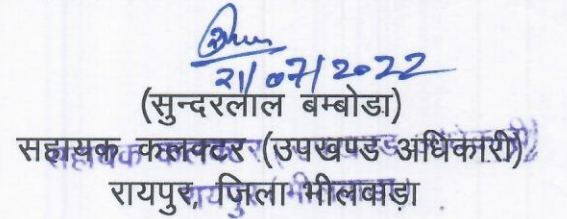 21/07/2022
(सुन्दरलाल बम्बोडा)
सहायक कलक्टर (उपखण्ड अधिकारी)
रायपुर, जिला भीलवाड़ा